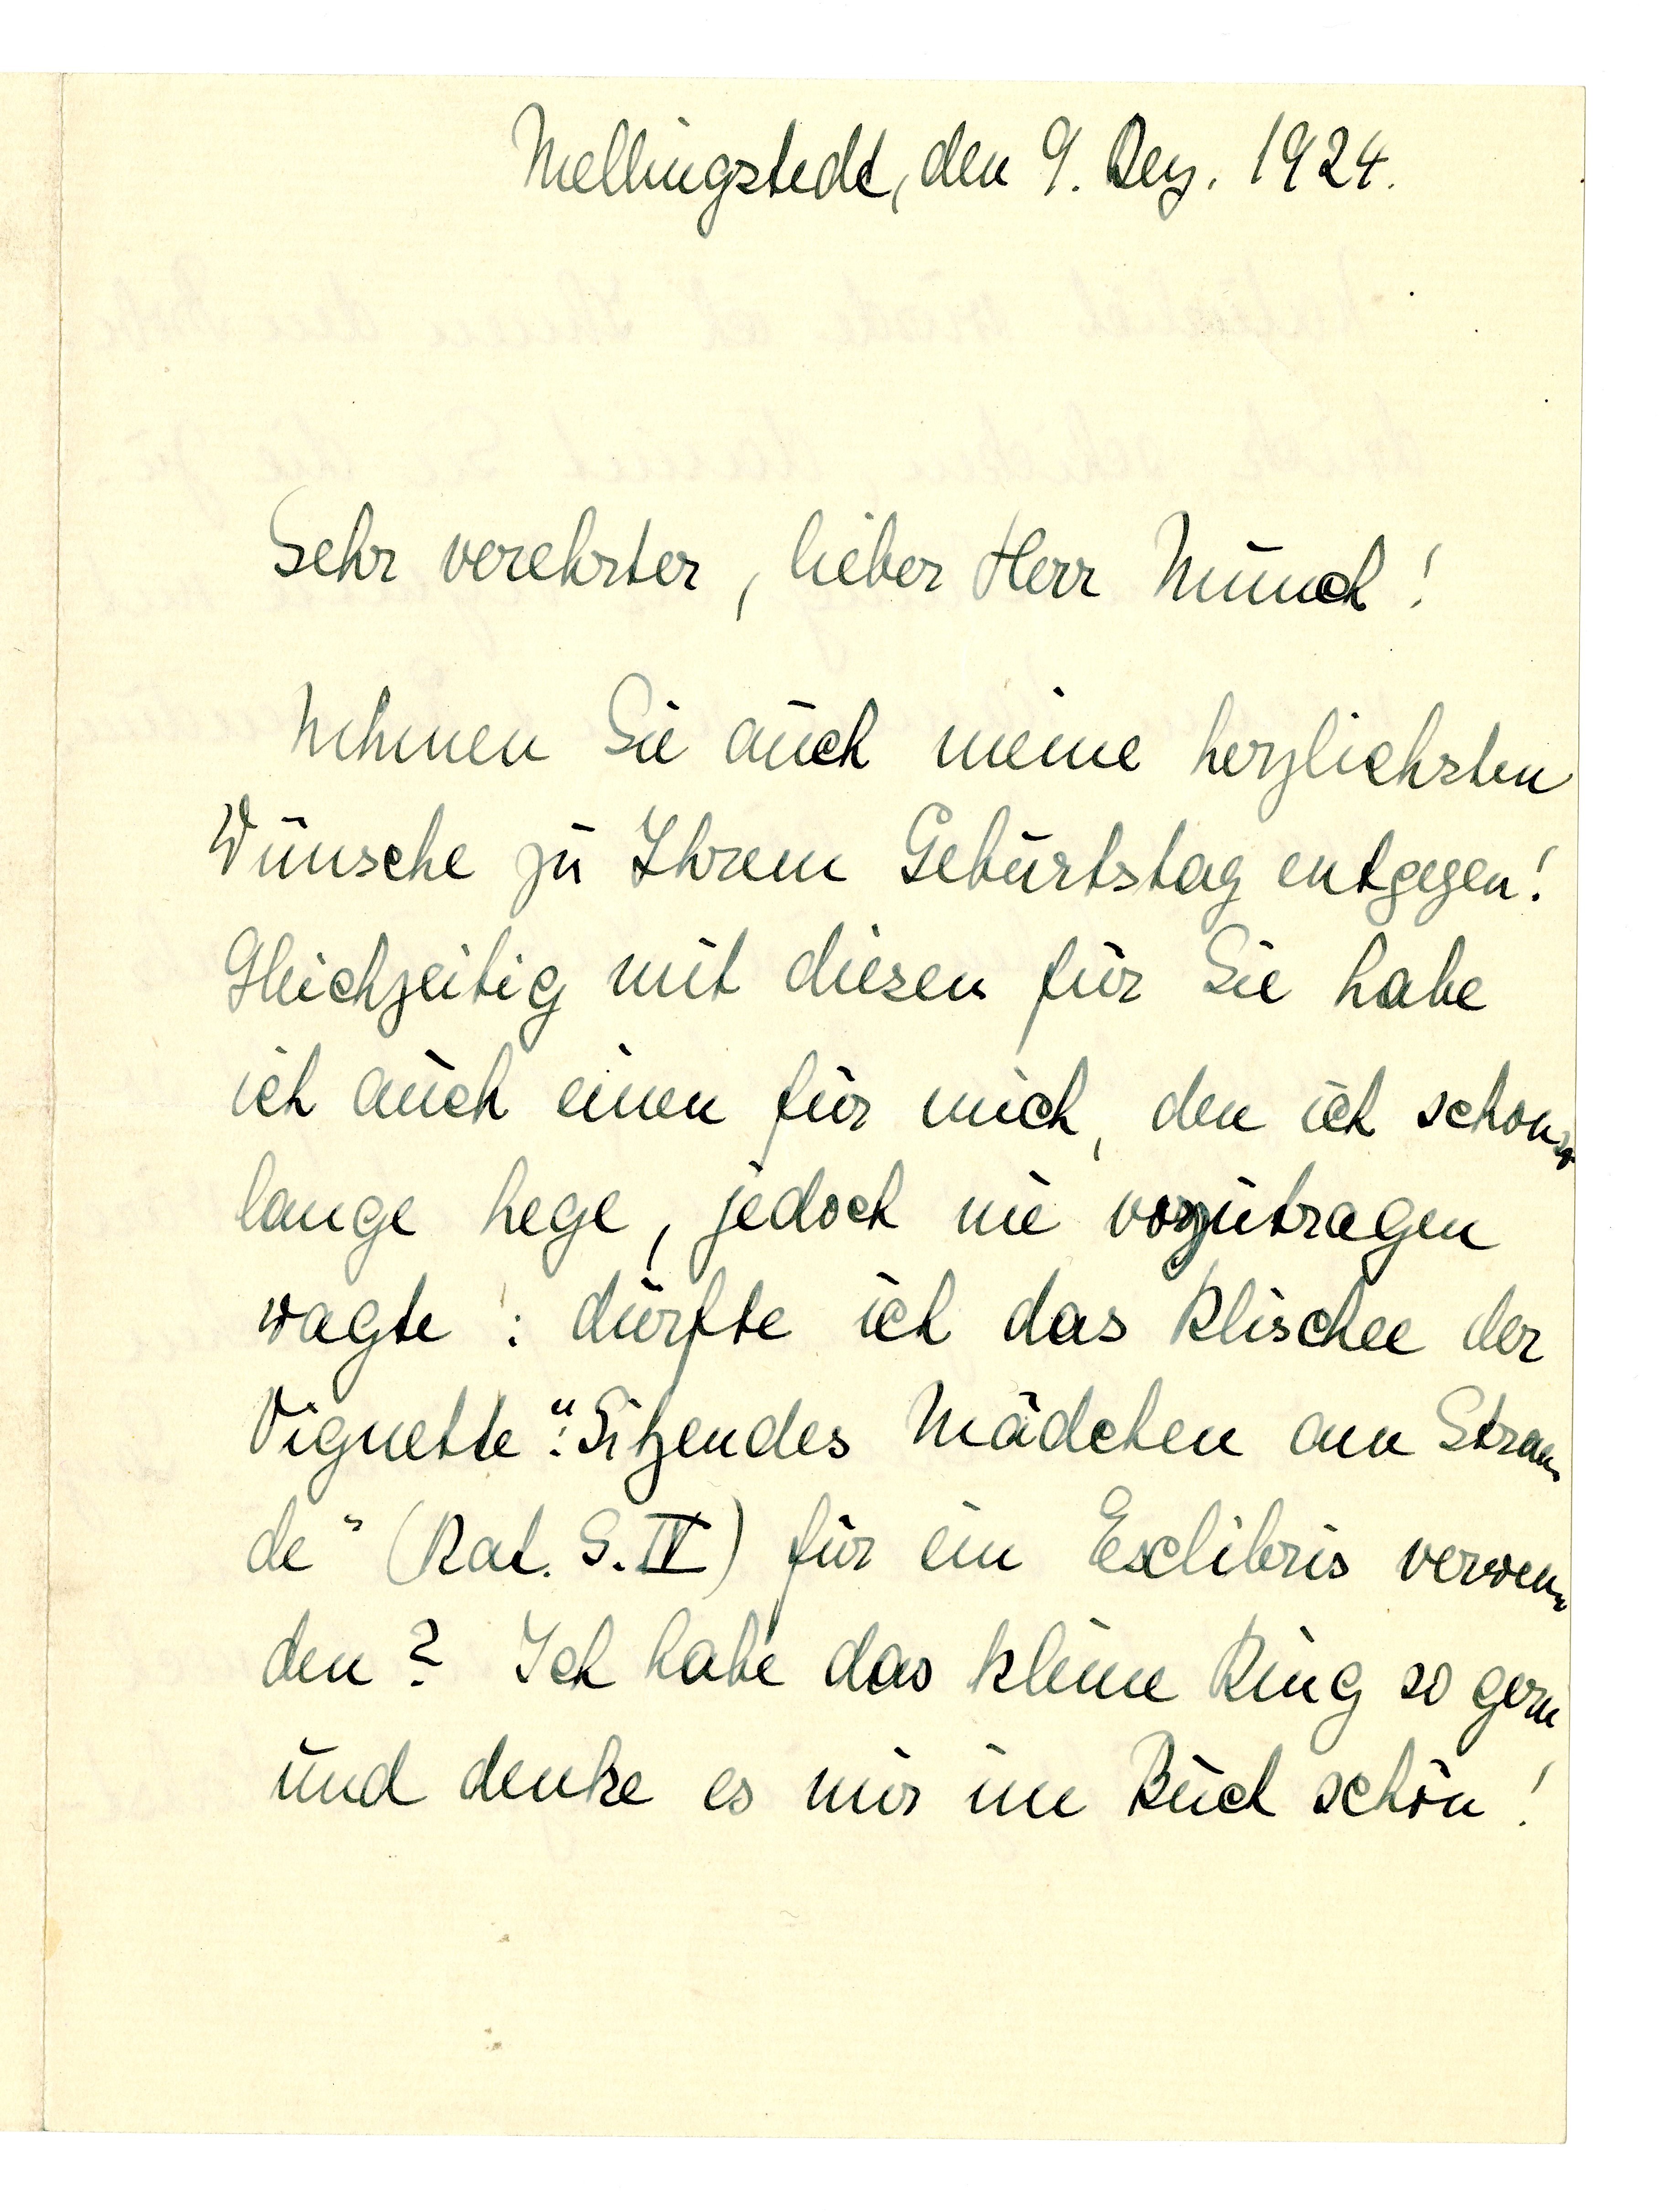 Mellingstedt, den 9. Dez. 1924.
Sehr verehrter, lieber Herr Munch!
Nehmen Sie auch meine herzlichsten
Wünsche zu Ihrem Geburtstag entgegen!
Gleichzeitig mit diesen für Sie habe
ich auch einen für mich, den ich schon so
lange hege, jedoch nie vorzutragen
wagte: dürfte ich das Klischee der
Vignette: "Sitzendes Mädchen am Stran-
de" (Kat. S. IV) für ein Exlibris verwen-
den? Ich habe das kleine Ding so gern
und denke es mir im Buch schön!